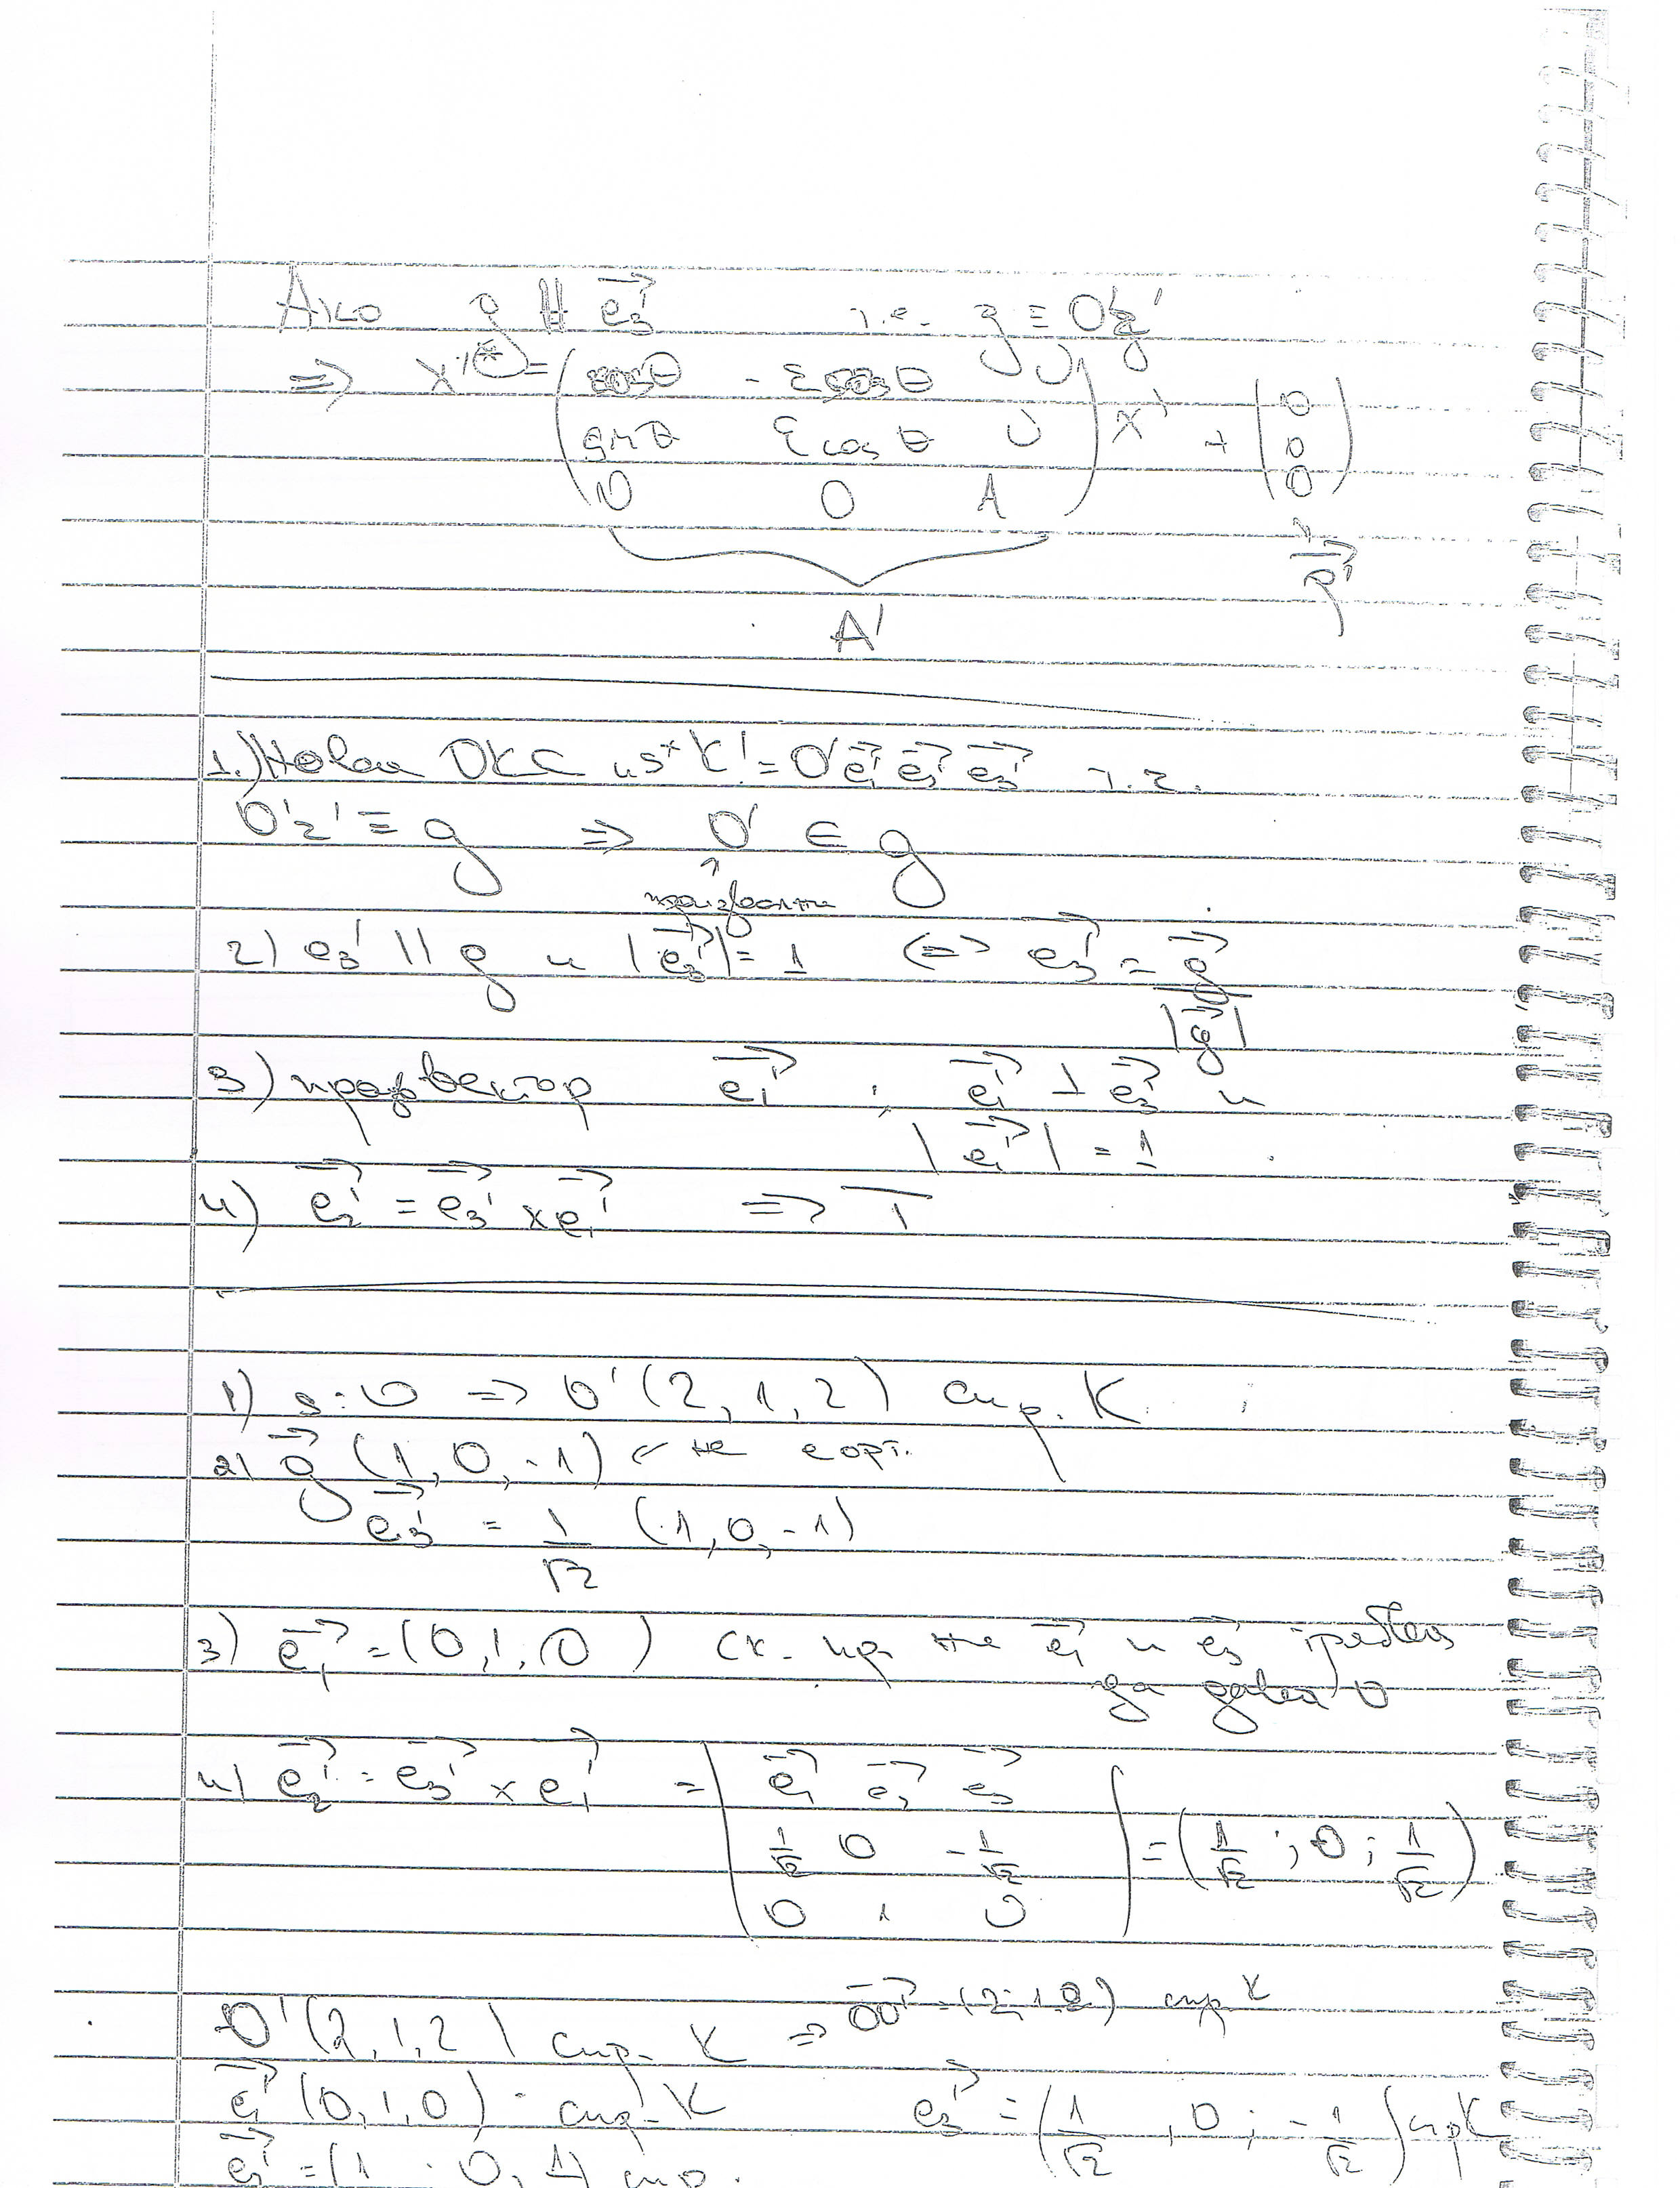 Ако g ⇈ e₃'→ т.е. g ≡ Oz'
=> X'* = ( cosθ -ε sinθ 0
sinθ ε cosθ 0
0 0 1 ) X' + ( 0
0
0 )
A' ρ'→
1.) Нова ОКС K' = O'e₁'→ e₂'→ e₃'→ т.ч.
O'z' ≡ g => O' ∈ g
↑
произволна
2) e₃' || g и |e₃'→| = 1 <=> e₃'→ = g→ / |g→|
3) вектор e₁'→ : e₁'→ ⊥ e₃'→ и
|e₁'→| = 1
4) e₂'→ = e₃'→ x e₁'→ => T
1) s: 0 => O'(2, 1, 2) спр. K
2) g→ (1, 0, -1) ← не е орт.
e₃'→ = 1/√2 (1, 0, -1)
3) e₁'→ = (0, 1, 0) ск. пр. на e₁→ и e₃→ трябва
да дава 0
4) e₂'→ = e₃'→ x e₁'→ = | e₁→ e₂→ e₃→
1/√2 0 -1/√2
0 1 0 | = (1/√2 ; 0 ; 1/√2)
O'(2, 1, 2) спр. K => OO'→ = (2, 1, 2) спр K
e₁'→ (0, 1, 0) - спр. K e₃'→ = (1/√2, 0; -1/√2) спр K